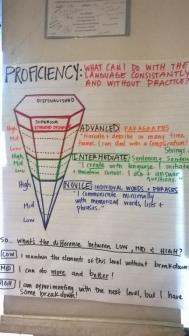 PROFICIENCY: WHAT CAN I DO WITH THE
LANGUAGE CONSISTANTLY
AND WITHOUT PRACTICE?
DISTINGUISHED
SUPERIOR
High
Mid
Low
ADVANCED PARAGRAPHS
"Narrate + describe in many time
frames. I can deal with a complication!
High
Mid
Low
INTERMEDIATE Sentences + Strings
"I create with language, I initiate
High
Mid
Low
NOVICE: INDIVIDUAL WORDS + PHRASES
"I communicate minimally
with memorized words, lists +
phrases."
So.. What's the difference between LOW, MID + HIGH?
LOW I maintain the elements of this level without breakdown.
MID I can do more and better!
HIGH I am experimenting with the next level, but I have
some breakdown!